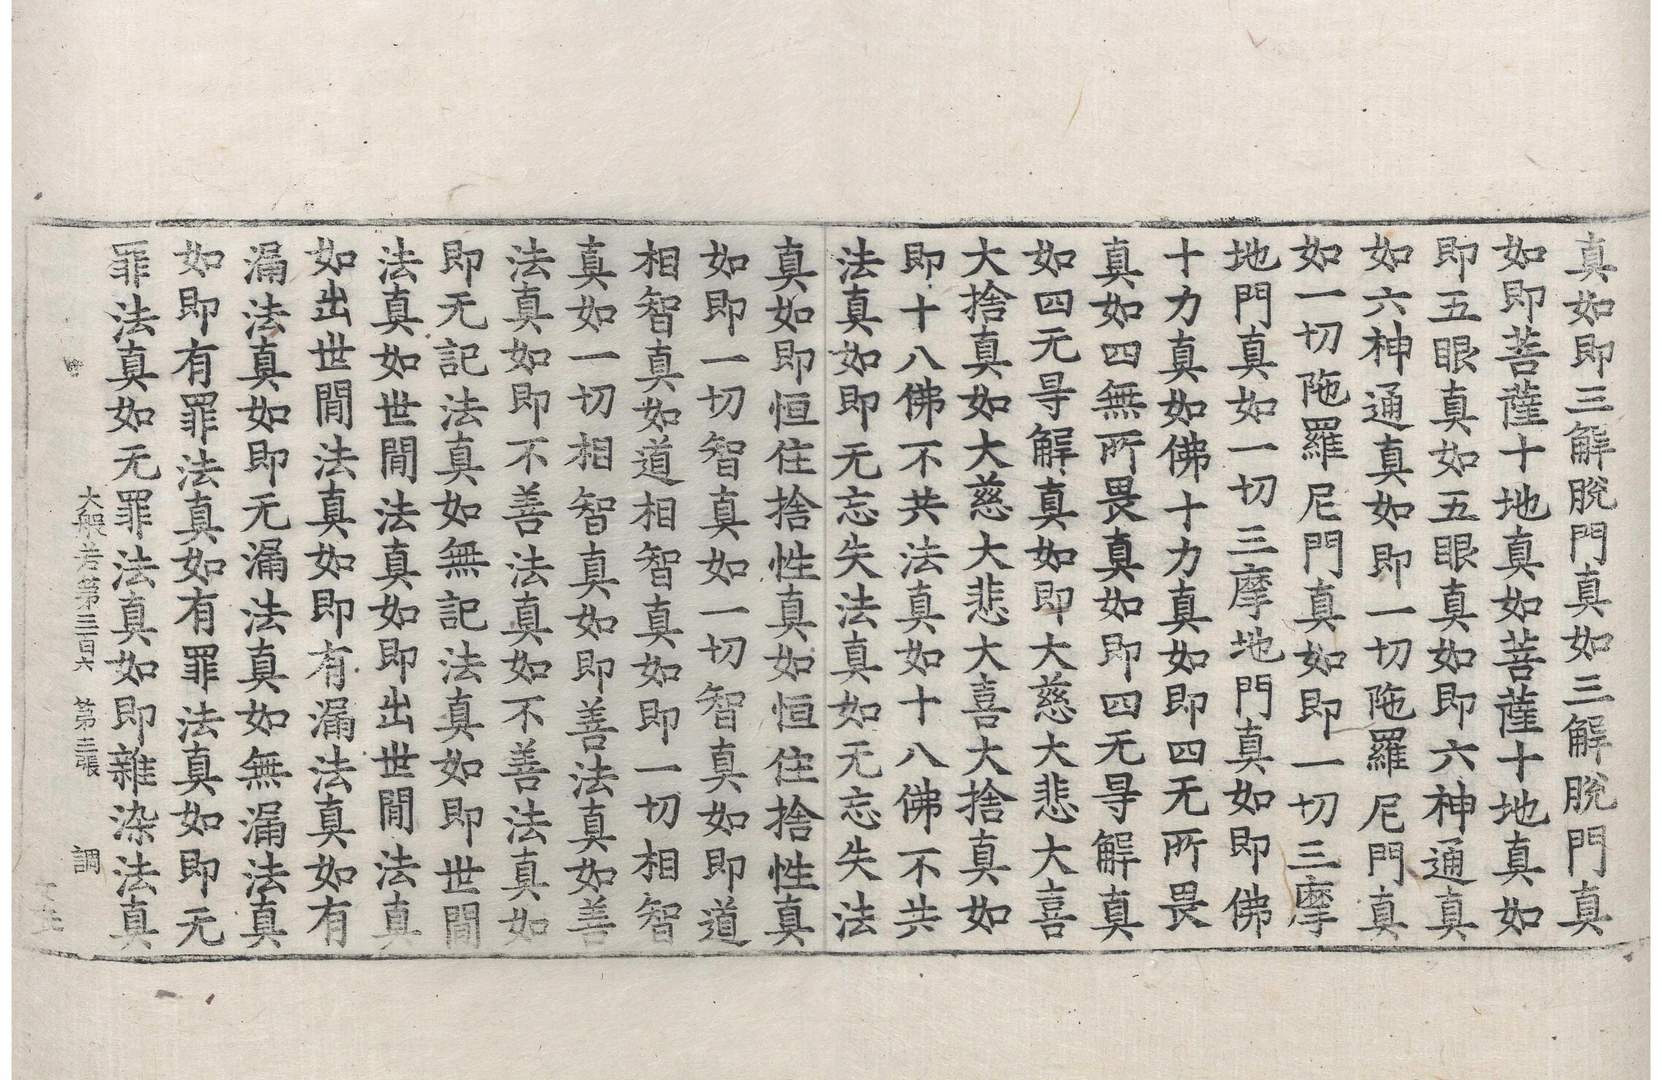 真如即三解脫門真如三解脫門真
如即菩薩十地真如菩薩十地真如
即五眼真如五眼真如即六神通真
如六神通真如即一切陁羅尼門真
如一切陁羅尼門真如即一切三摩
地門真如一切三摩地門真如即佛
十力真如佛十力真如即四无所畏
真如四無所畏真如即四无㝵解真
如四无㝵解真如即大慈大悲大喜
大捨真如大慈大悲大喜大捨真如
即十八佛不共法真如十八佛不共
法真如即无忘失法真如无忘失法
真如即恒住捨性真如恒住捨性真
如即一切智真如一切智真如即道
相智真如道相智真如即一切相智
真如一切相智真如即善法真如善
法真如即不善法真如不善法真如
即无記法真如無記法真如即世間
法真如世間法真如即出世間法真
如出世間法真如即有漏法真如有
漏法真如即无漏法真如無漏法真
如即有罪法真如有罪法真如即无
罪法真如无罪法真如即雜染法真
大般若第三百六 第三張 調